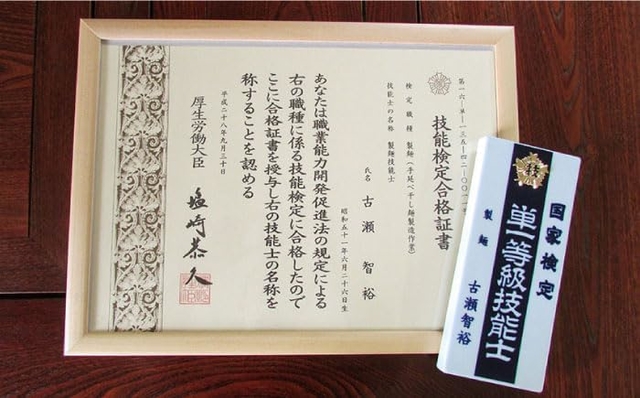 技能検定合格証書
検定職種 製麺(手延べ干し麺製造作業)
技能士の名称 製麺技能士
氏名 古瀬智裕
昭和五十一年六月二十六日生
あなたは職業能力開発促進法の規定による
右の職種に係る技能検定に合格したので
ここに合格証書を授与し右の技能士の名称を
称することを認める
平成二十八年九月三十日
厚生労働大臣
塩崎恭久
技
国家検定
単一等級技能士
製麺
古瀬智裕